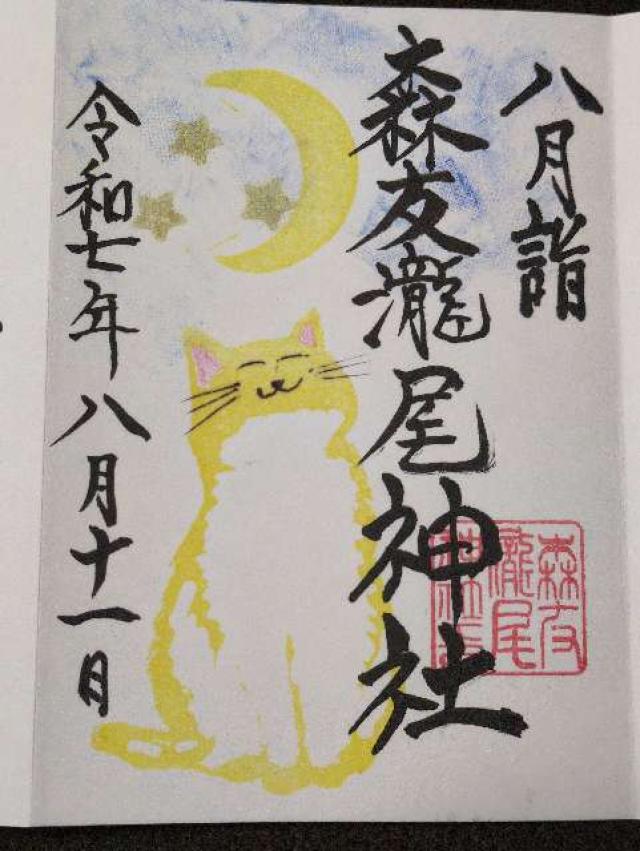 八月詣
森友瀧尾神社
森友
瀧尾
神社
令和七年八月十一日